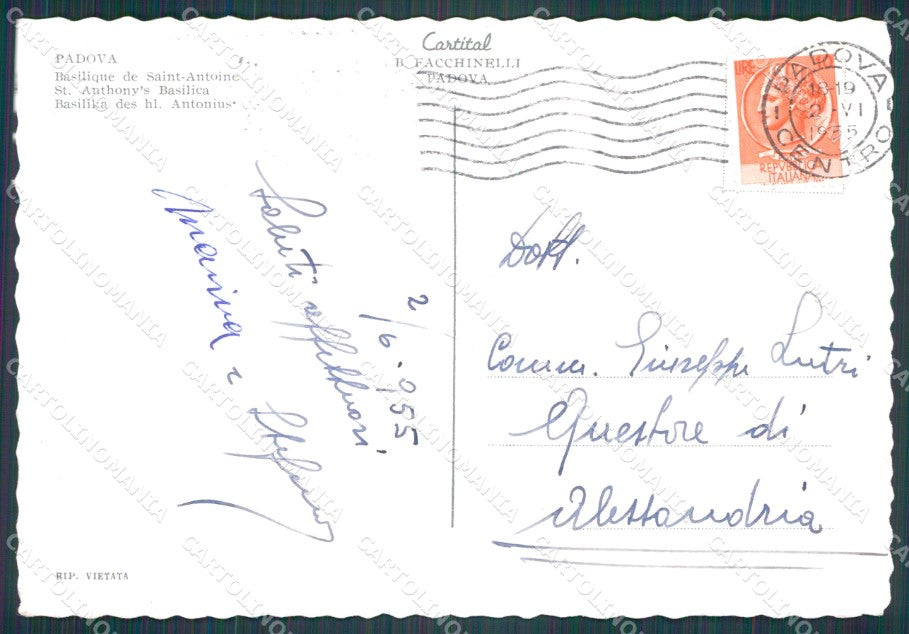 PADOVA
Basilique de Saint-Antoine
St. Anthony's Basilica
Basilika des hl. Antonius
Cartital
B. FACCHINELLI
PADOVA
LIRE 10
REPVBBLICA
ITALIANA
PADOVA
CENTRO
18-19
2-VI
1955
2/6.955
Saluti affettuosi
Marina e Stefano
Dott.
Comm. Giuseppe Lutri
Questore di
Alessandria
RIP. VIETATA
CARTOLINOMANIA